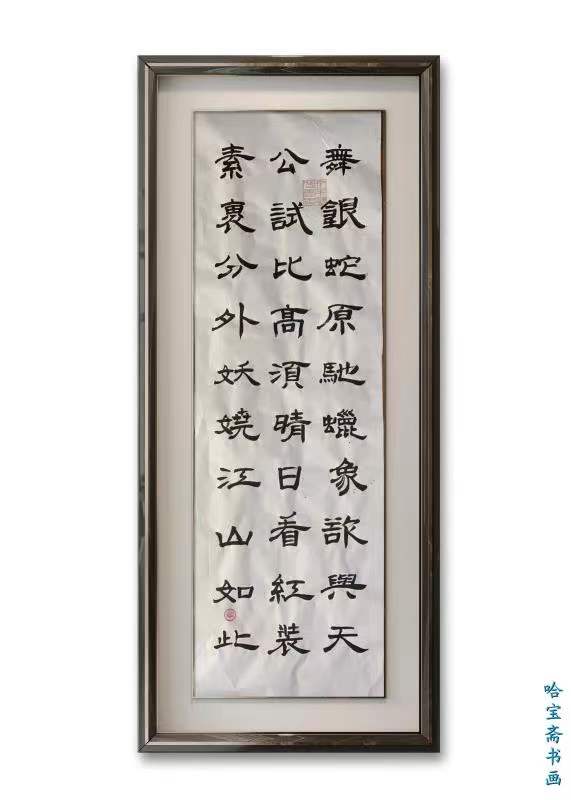 舞銀蛇原馳蠟象欲與天
公試比高須晴日看紅裝
素裹分外妖嬈江山如此
哈宝斋书画